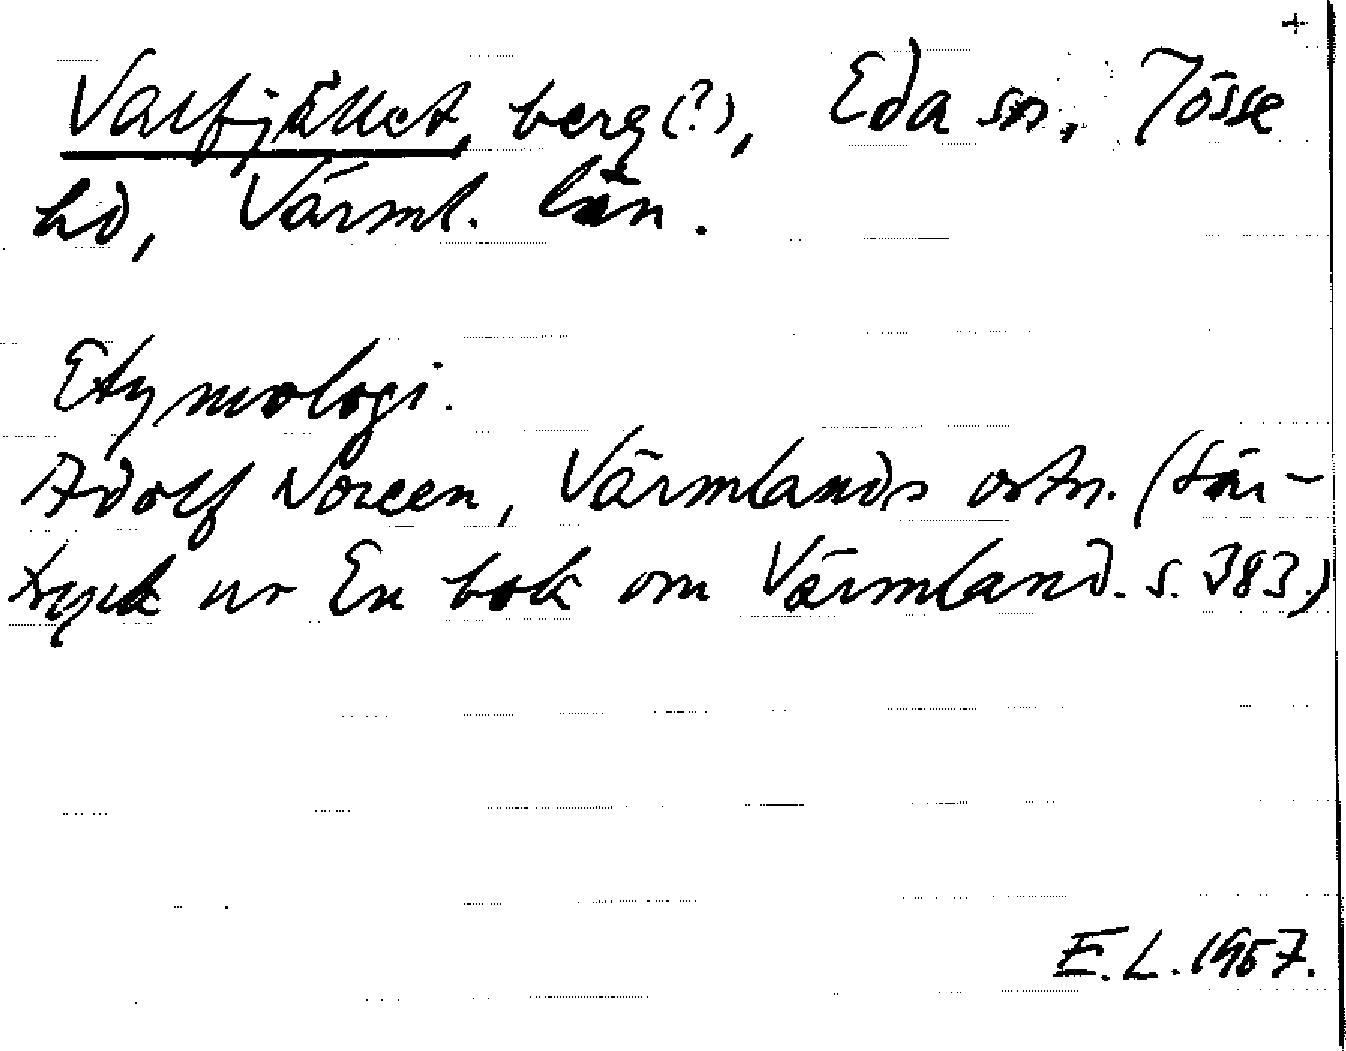 +
Valfjället, berg(?), Eda sn, Jösse
hd, Värml. län.
Etymologi.
Adolf Noreen, Värmlands ortn. (Sär-
tryck ur En bok om Värmland. s. 383.)
E.L. 1957.